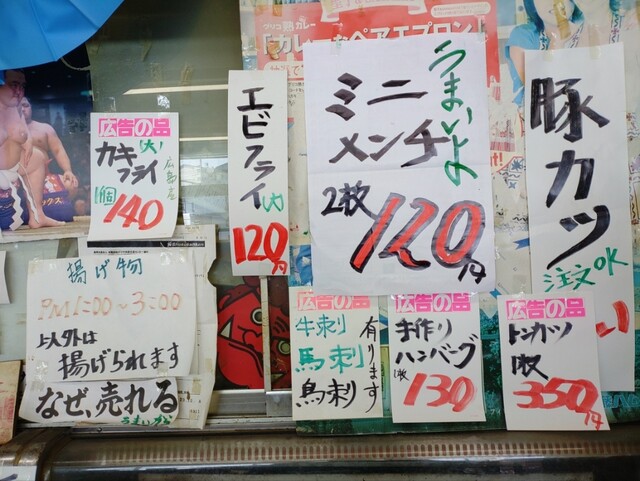 グリコ 熟カレー
「カレーなペアエプロン」
広告の品
カキ(大)
フライ
広島産
1個
140
エビフライ(大)
120円
ミニ
メンチ
うまいよ
2枚
120円
豚カツ
注文OK
揚げ物
PM1:00〜3:00
以外は
揚げられます
なぜ、売れる
うまいから
広告の品
牛刺
馬刺
鳥刺
有ります
広告の品
手作り
ハンバーグ
1枚
130
広告の品
トンカツ
1枚
350円